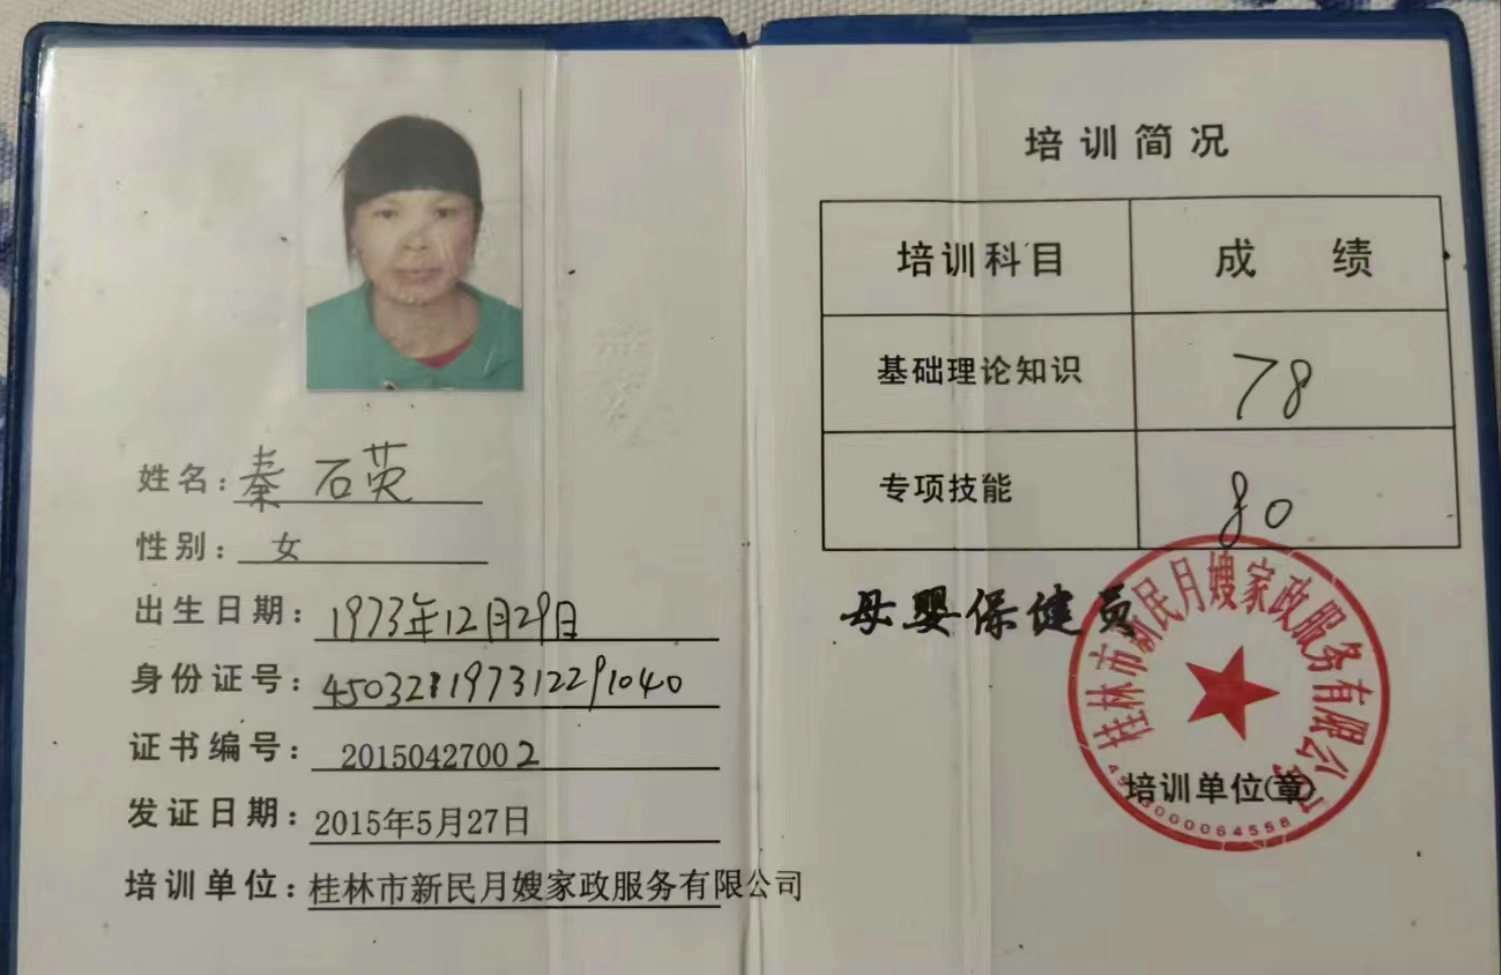 姓名：秦石英
性别：女
出生日期：1973年12月29日
身份证号：450321197312291040
证书编号：20150427002
发证日期：2015年5月27日
培训单位：桂林市新民月嫂家政服务有限公司
培训简况
培训科目 成绩
基础理论知识 78
专项技能 80
母婴保健员
桂林市新民月嫂家政服务有限公司
培训单位(章)